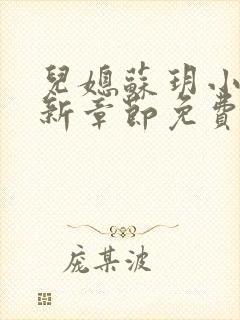 兒媳蘇玥小
新章節免費
庞某波